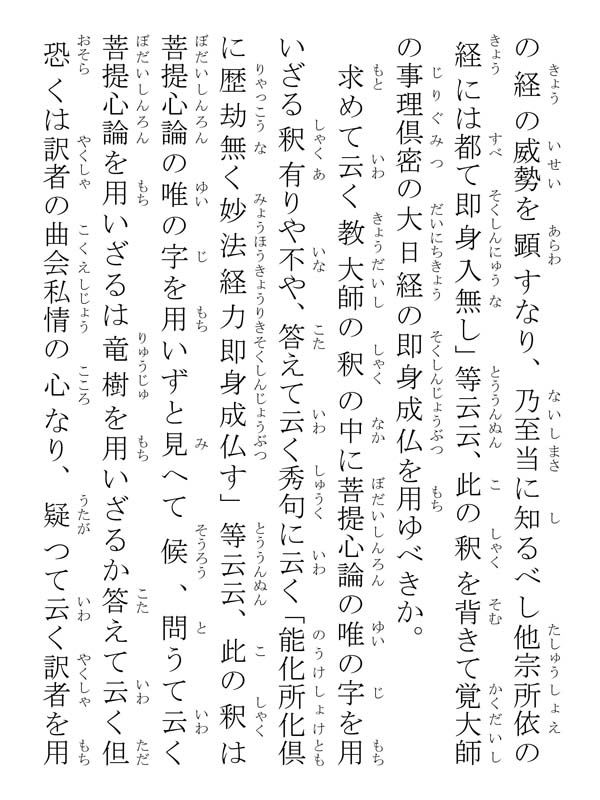 の経の威勢を顕すなり、乃至当に知るべし他宗所依の
経には都て即身入無し」等云云、此の釈を背きて覚大師
の事理倶密の大日経の即身成仏を用ゆべきか。
求めて云く教大師の釈の中に菩提心論の唯の字を用
いざる釈有りや不や、答えて云く秀句に云く「能化所化倶
に歴劫無く妙法経力即身成仏す」等云云、此の釈は
菩提心論の唯の字を用いずと見へて候、問うて云く
菩提心論を用いざるは竜樹を用いざるか答えて云く但
恐くは訳者の曲会私情の心なり、疑つて云く訳者を用